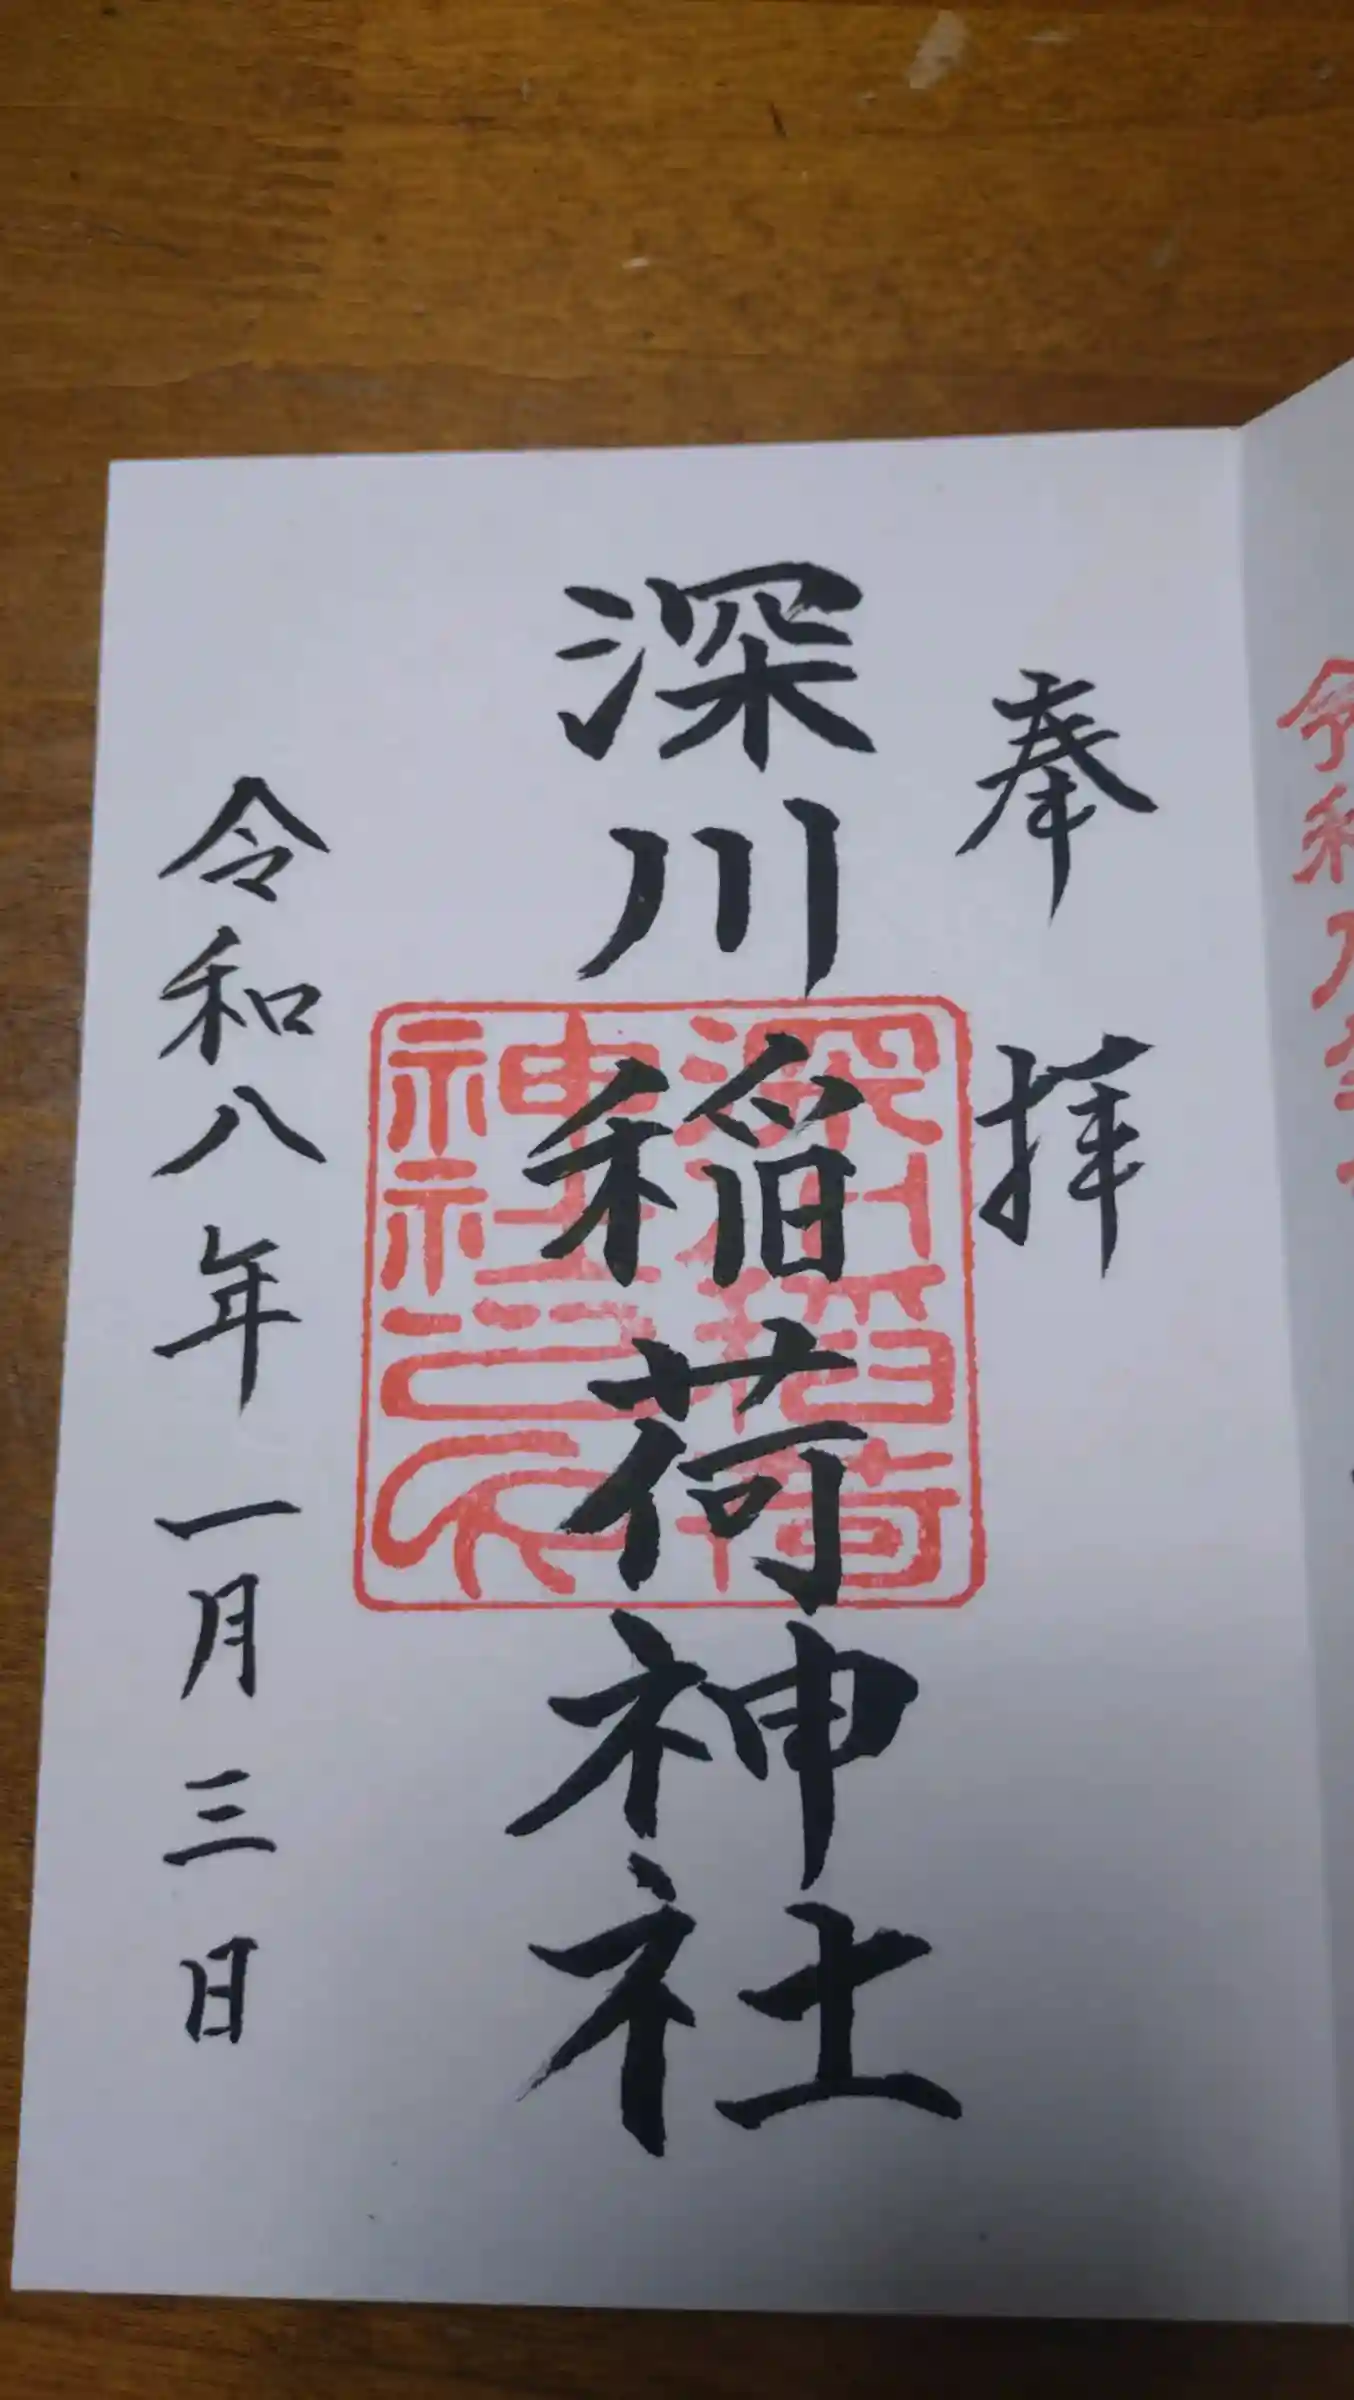 奉拝
深川稲荷神社
深川稲荷
神社之印
令和八年一月三日